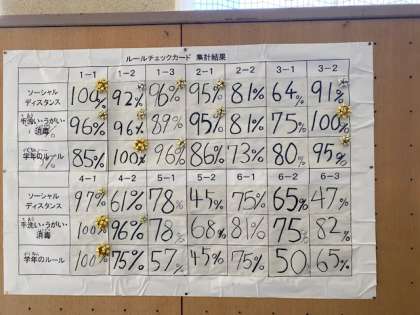 ルールチェックカード 集計結果
1-1 1-2 1-3 2-1 2-2 3-1 3-2
ソーシャル
ディスタンス 100% 92% 96% 95% 81% 64% 91%
手洗い・うがい・
消毒 96% 96% 89% 95% 81% 75% 100%
学年のルール 85% 100% 96% 86% 73% 80% 95%
4-1 4-2 5-1 5-2 6-1 6-2 6-3
ソーシャル
ディスタンス 97% 61% 78% 45% 75% 65% 47%
手洗い・うがい・
消毒 100% 96% 78% 68% 81% 75% 82%
学年のルール 100% 75% 57% 45% 75% 50 65%